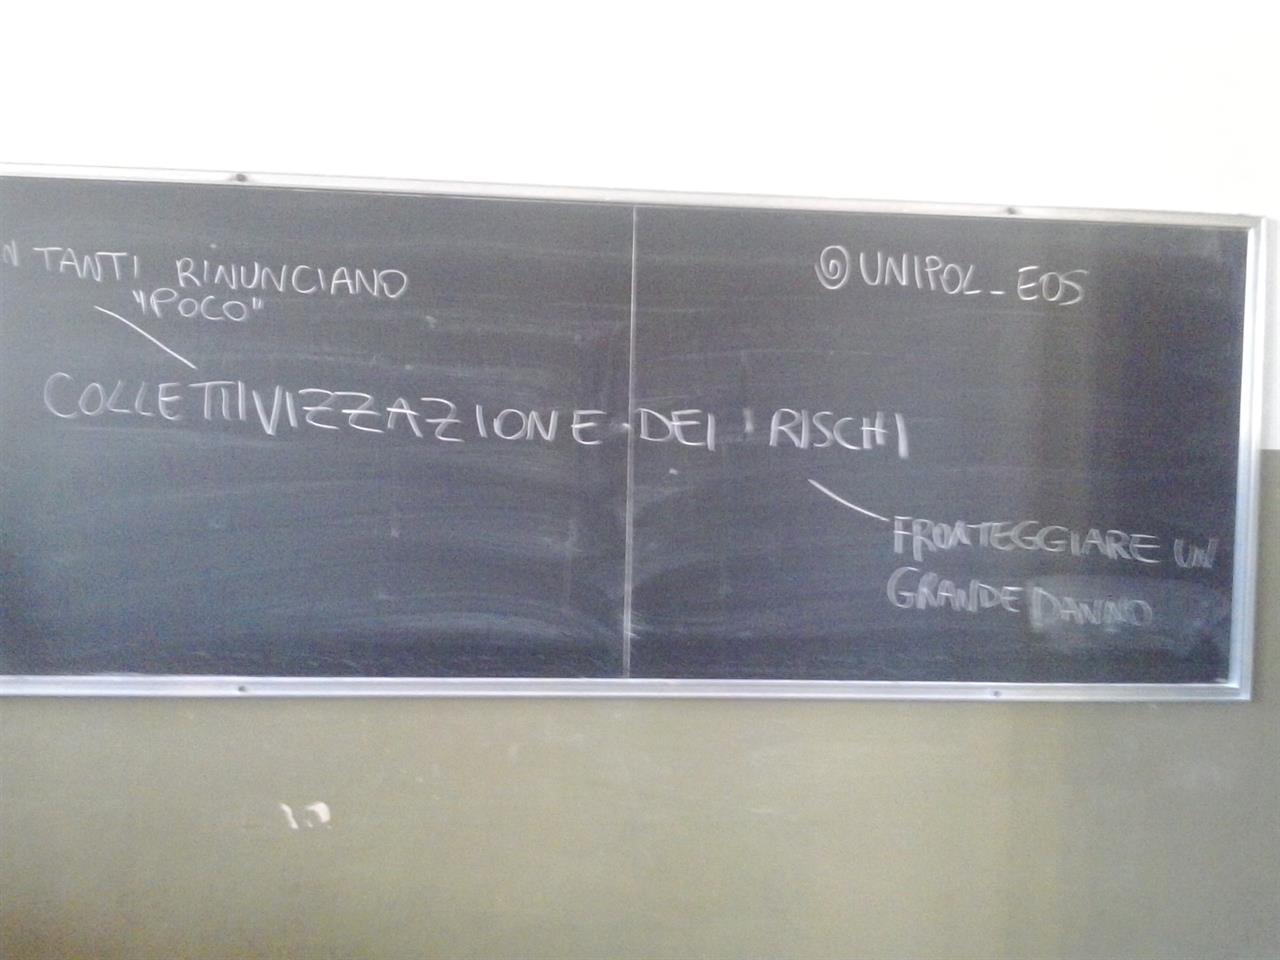 N TANTI RINUNCIANO
"POCO"
@UNIPOL_EOS
COLLETTIVIZZAZIONE DEI RISCHI
FRONTEGGIARE UN
GRANDE DANNO